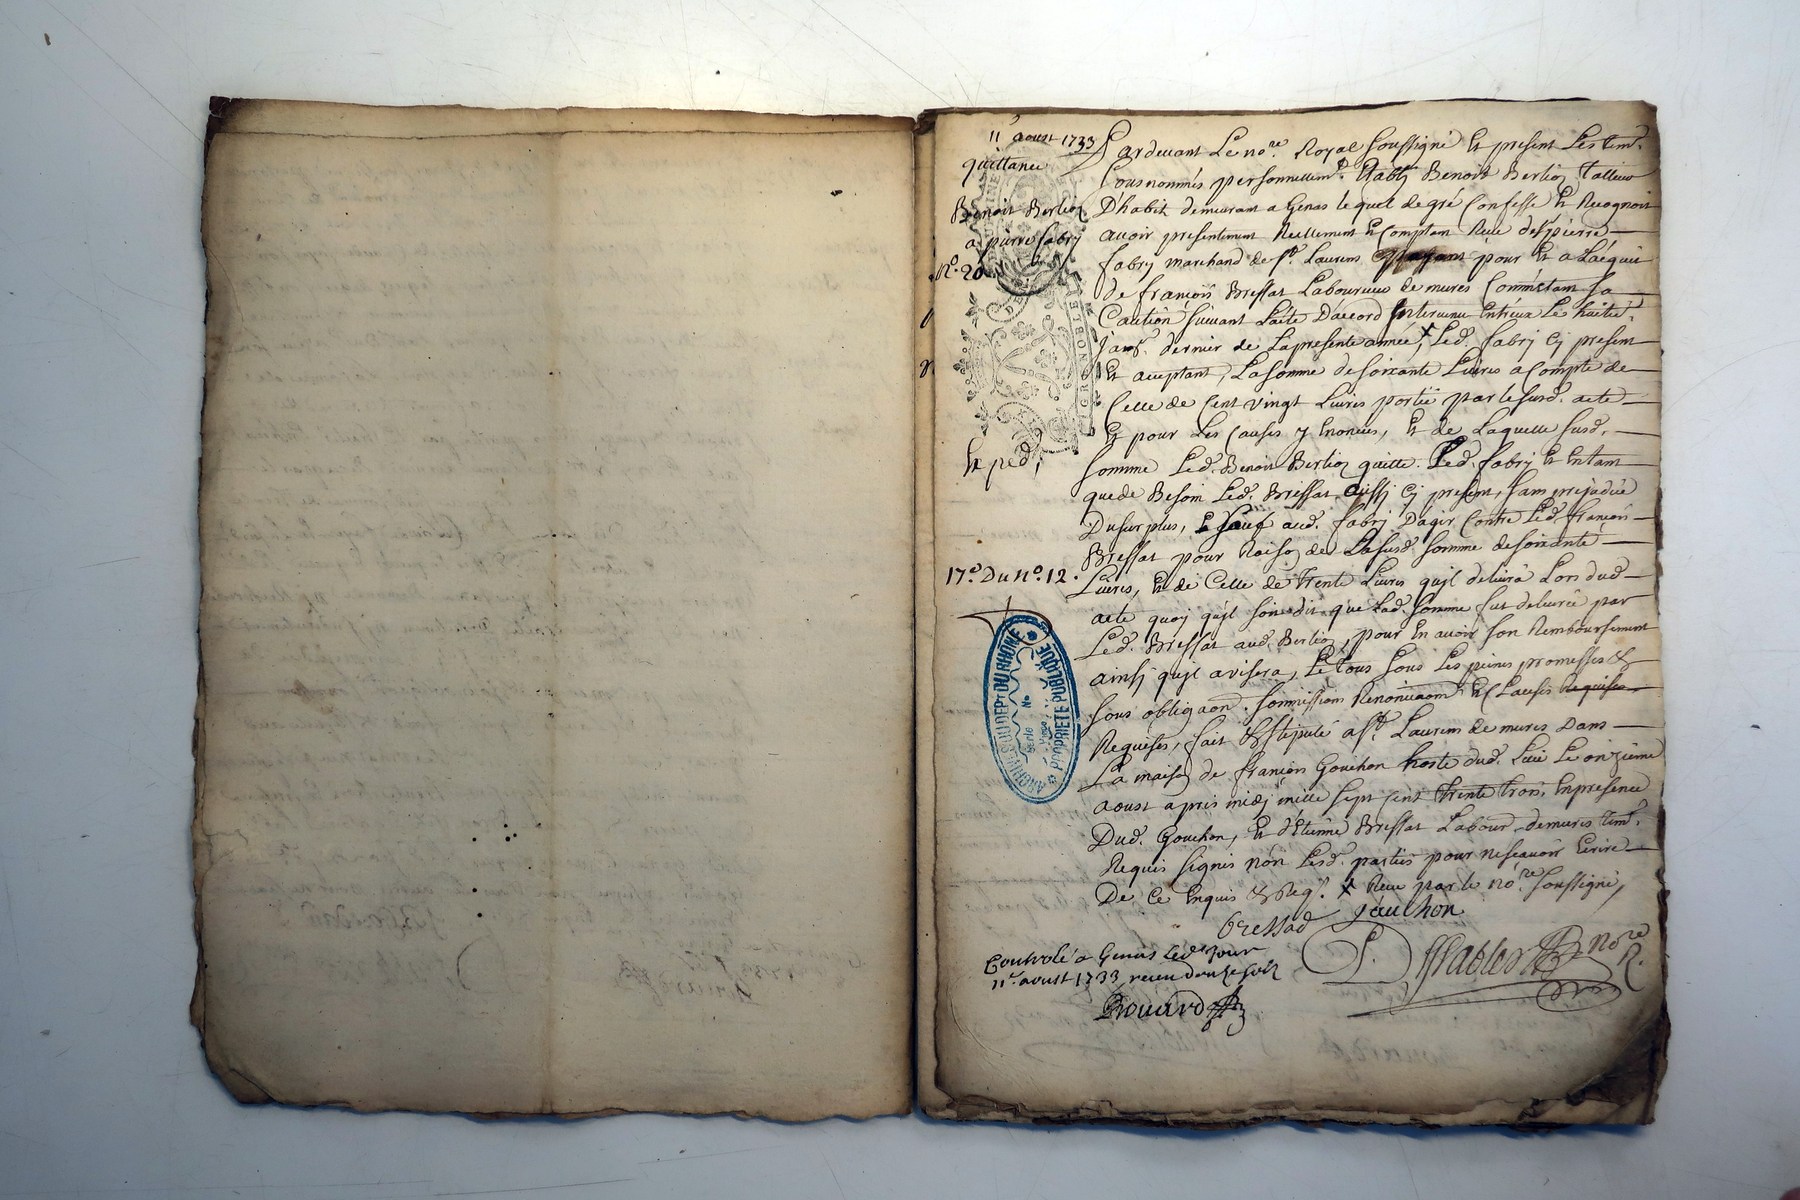 11e aoust 1733
quittance
Benoit Berlioz
a pierre fabry
No. 20
Expéd,
17e. Du No. 12.
Pardevant Le nore. Royal soussigné Et present Les tem.
sousnommés personnellemt. Etably Benoit Berlioz tallieur
Dhabit demeurant a Genas lequel de gré Confesse Et Recognoit
avoir presentement Reellement Et Comptan Reçu de sr. pierre
fabry marchand de St. Laurens pour Et a Laéquit
de françois Bressat Laboureur de mures Comme Etant sa
Caution suivant Laite Daccord Intervenu Entreux Le huitie.
janr. dernier de La presente année, x Led. fabry Cy present
Et acceptant, La somme de soixante Livres a Compte de
Celle de Cent vingt Livres portée par le susd. acte
Et pour Les Causes y Enoncées, Et de Laquelle susd.
somme Led. Benoit Berlioz quitte Led. fabry Et Entant
que de Besoin Led. Bressat aussy Cy present, sans prejudice
Du surplus, Et sauf aud. fabry Dagir Contre Led. françois
Bressat pour Raison de La susd. somme de soixante
Livres, Et de Celle de trente Livres quil delivra Lors dud.
acte quoy quil soit dit que Lad. somme fut delivrée par
Led. Bressat aud. Berlioz, pour En avoir son Remboursement
ainsy quil avisera, Le tous sous Les peines promesses &
sous obligaon. sommissions Renonciaons. Et Clauses Requises
Requises, fait & stipulé a St. Laurens de mures Dans
La maison de françois Gouchon hoste dud. Lieu Le onzieme
aoust apres midy mille sept Cent trente trois, En presence
Dud. Gouchon, Et d'Etienne Bressat Labour. de mures tem.
Requis signés non Lesd. parties pour ne scavoir Ecrire
De Ce Enquis & Reqs. x Reçu par le nore. soussigné,
Bressad gauchon
nore R.
Controlé a Genas Led. jour
11e. aoust 1733 receu douze sols
ARCHIVES DU DEPt DU RHONE
Série No
PROPRIETE PUBLIQUE